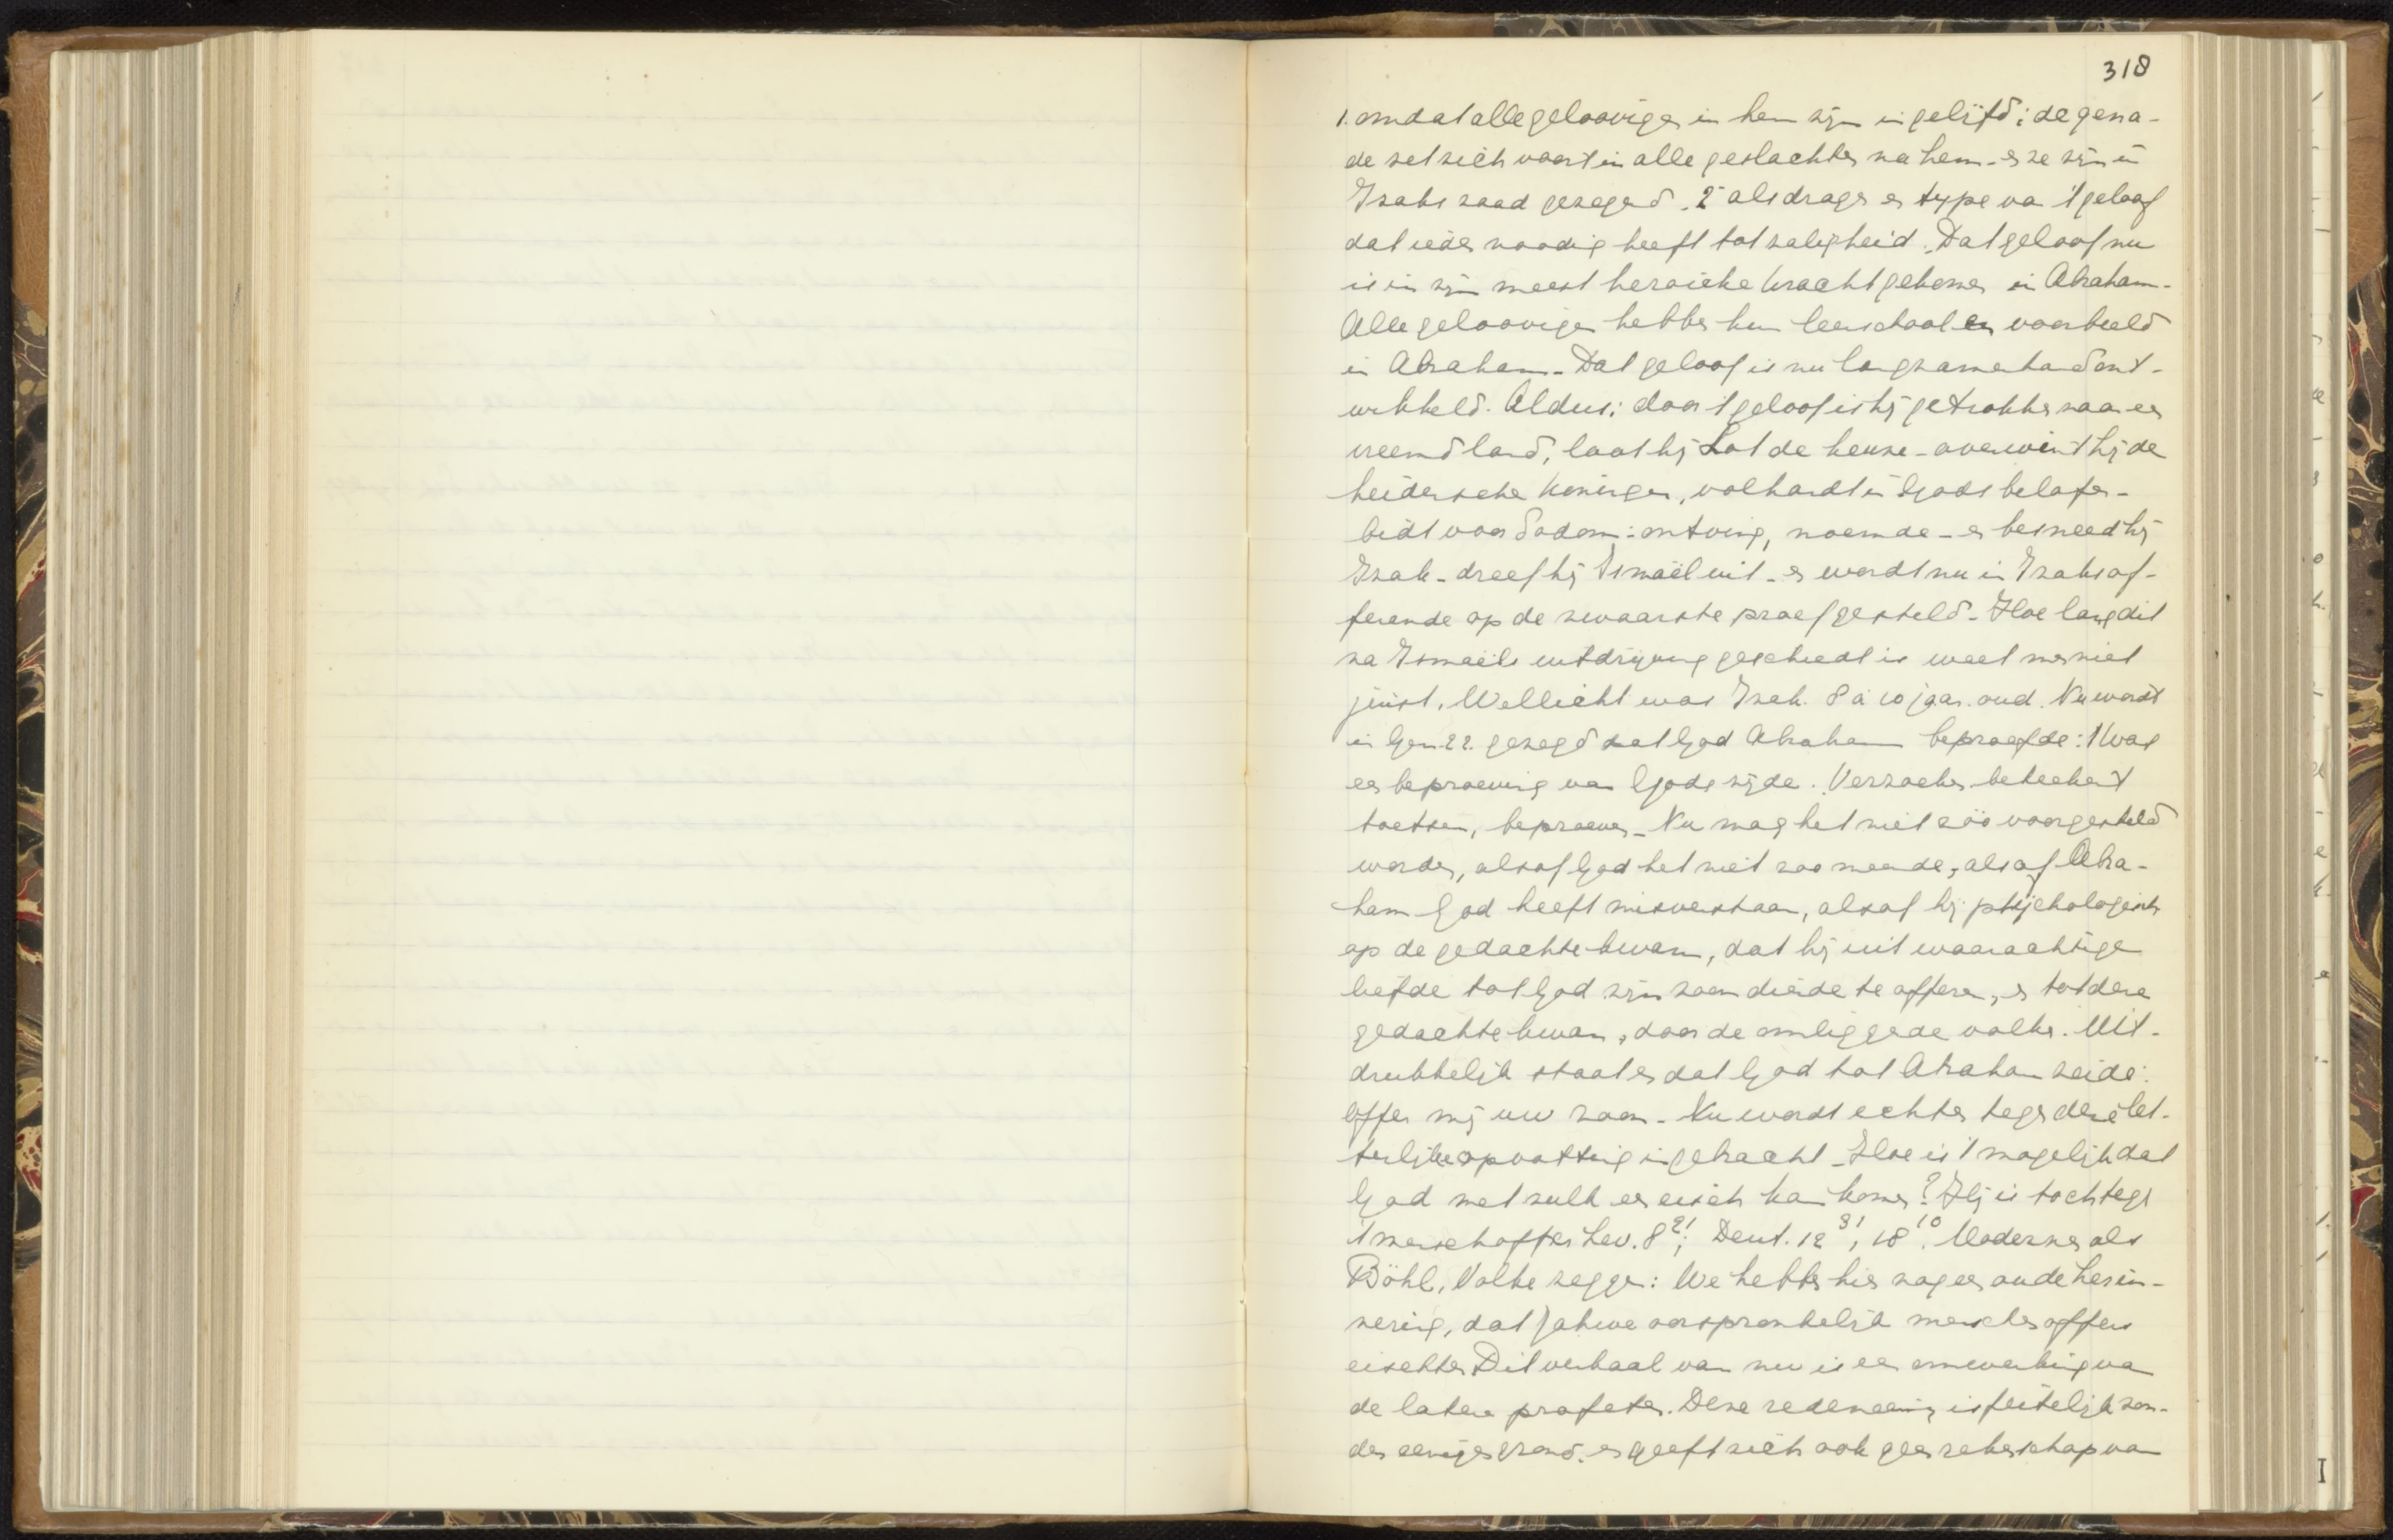 318
1. omdat alle geloovigen in hem zijn ingelijfd; de gena-
de zet zich voort in alle geslachten na hem - en ze zijn in
Izaks zaad gezegend. 2e als drager en type van 't geloof
dat ieder noodig heeft tot zaligheid. Dat geloof nu
is in zijn meest heroieke kracht gekomen in Abraham.
Alle geloovigen hebben hun leerschool en voorbeeld
in Abraham - Dat geloof is nu langzamerhand ont-
wikkeld. Aldus: door 't geloof is hij getrokken naar een
vreemd land, laat hij Lot de keuze - overwint hij de
heidensche koningen, volhardt in Gods beloften -
bidt voor Sodom: ontving, noemde - en besneed hij
Izak - dreef hij Ismaël uit - en wordt nu in Izaks of-
ferande op de zwaarste proef gesteld - Hoe lang dit
na Ismaëls uitdrijving geschiedt is weet men niet
juist. Wellicht was Izak 8 à 10 jaar oud. Nu wordt
in Gen. 22. gezegd dat God Abraham beproefde: 't was
een beproeving van Gods zijde. Verzoeken beteekent
toetsen, beproeven - Nu mag het niet zóó voorgesteld
worden, alsof God het niet zoo meende, alsof Abra-
ham God heeft misverstaan, alsof hij psychologisch
op de gedachte kwam, dat hij uit waarachtige
liefde tot God zijn zoon diende te offeren, en tot deze
gedachte kwam, door de omliggende volken. Uit-
drukkelijk staat er dat God tot Abraham zeide:
offer mij uw zoon - Nu wordt echter tegen deze let-
terlijke opvatting ingebracht - Hoe is 't mogelijk dat
God met zulk een eisch kan komen? Hij is toch tegen
't menschoffer Lev. 8 21; Deut. 12 31, 18 10. Modernen als
Böhl, Volke zeggen: We hebben hier nog een oude herin-
nering, dat Jahwe oorspronkelijk menschenoffers
eischte. Dit verhaal van nu is een omwerking van
de latere profeten. Deze redeneering is feitelijk zon-
der eenigen grond, en geeft zich ook geen rekenschap van